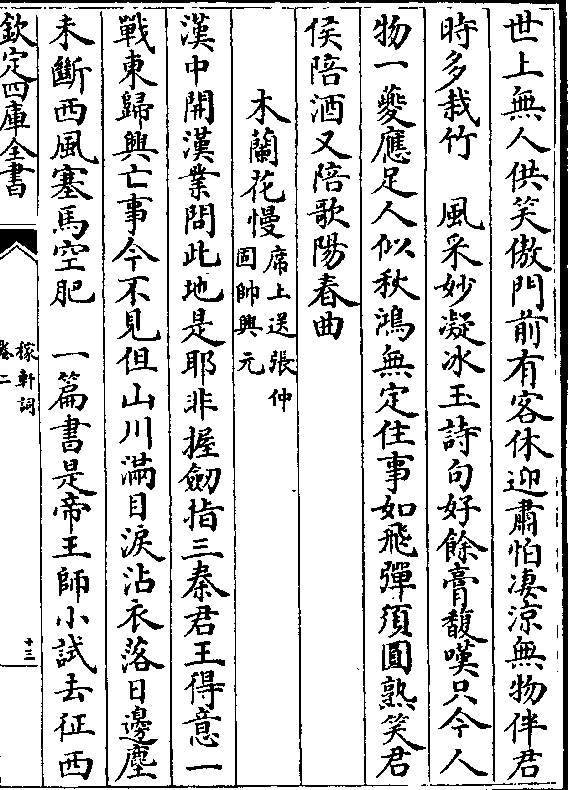 世上無人供笑傲門前有客休迎肅怕凄涼無物伴君
時多栽竹　風采妙凝冰玉詩句好餘膏馥嘆只今人
物一夔應足人似秋鴻無定住事如飛彈須圓熟笑君
侯陪酒又陪歌陽春曲
木蘭花慢席上送張仲
固帥興元
漢中開漢業問此地是耶非握劒指三秦君王得意一
戰東歸興亡事今不見但山川滿目淚沾衣落日邊塵
未斷西風塞馬空肥　一篇書是帝王師小試去征西
欽定四庫全書
稼軒詞
卷二
十三